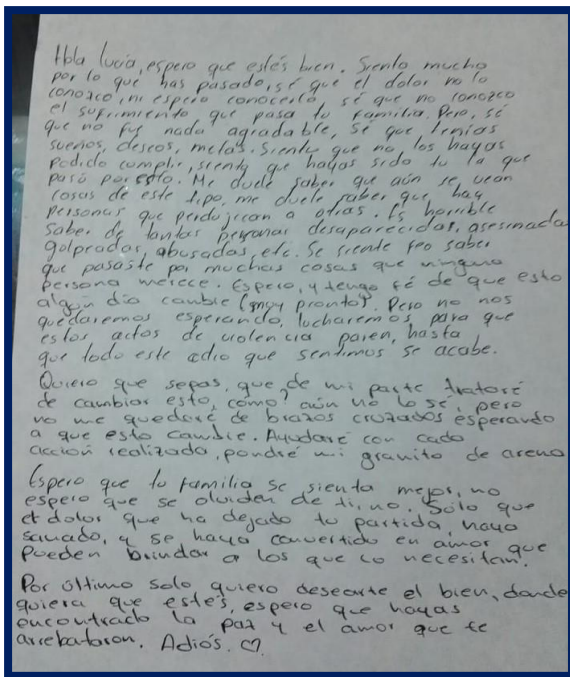 Hola Lucía, espero que estés bien. Siento mucho
por lo que has pasado, sé que el dolor no lo
conozco, ni espero conocerlo, sé que no conozco
el sufrimiento que pasa tu familia. Pero, sé
que no fue nada agradable, Sé que tenías
sueños, deseos, metas. Siento que no los hayas
podido cumplir, siento que hayas sido tu la que
pasó por esto. Me duele saber que aún se vean
cosas de este tipo, me duele saber que hay
personas que perdujecan a otras. Es horrible
saber de tantas personas desaparecidas, asesinadas
golpeadas, abusadas, etc. Se siente feo saber
que pasaste por muchas cosas que ninguna
persona merece. Espero, y tengo fé de que esto
algún día cambie (muy pronto). Pero no nos
quedaremos esperando, lucharemos para que
estos actos de violencia paren, hasta
que todo este odio que sentimos se acabe.
Quiero que sepas, que de mi parte trataré
de cambiar esto, como? aún no lo sé, pero
no me quedaré de brazos cruzados esperando
a que esto cambie. Ayudaré con cada
acción realizada, pondré mi granito de arena
Espero que tu familia se sienta mejor, no
espero que se olviden de ti, no. Sólo que
el dolor que ha dejado tu partida, haya
sanado, y se haya convertido en amor que
pueden brindar a los que lo necesitan.
Por último solo quiero desearte el bien, donde
quiera que estés, espero que hayas
encontrado la paz y el amor que te
arrebataron. Adiós. ♡